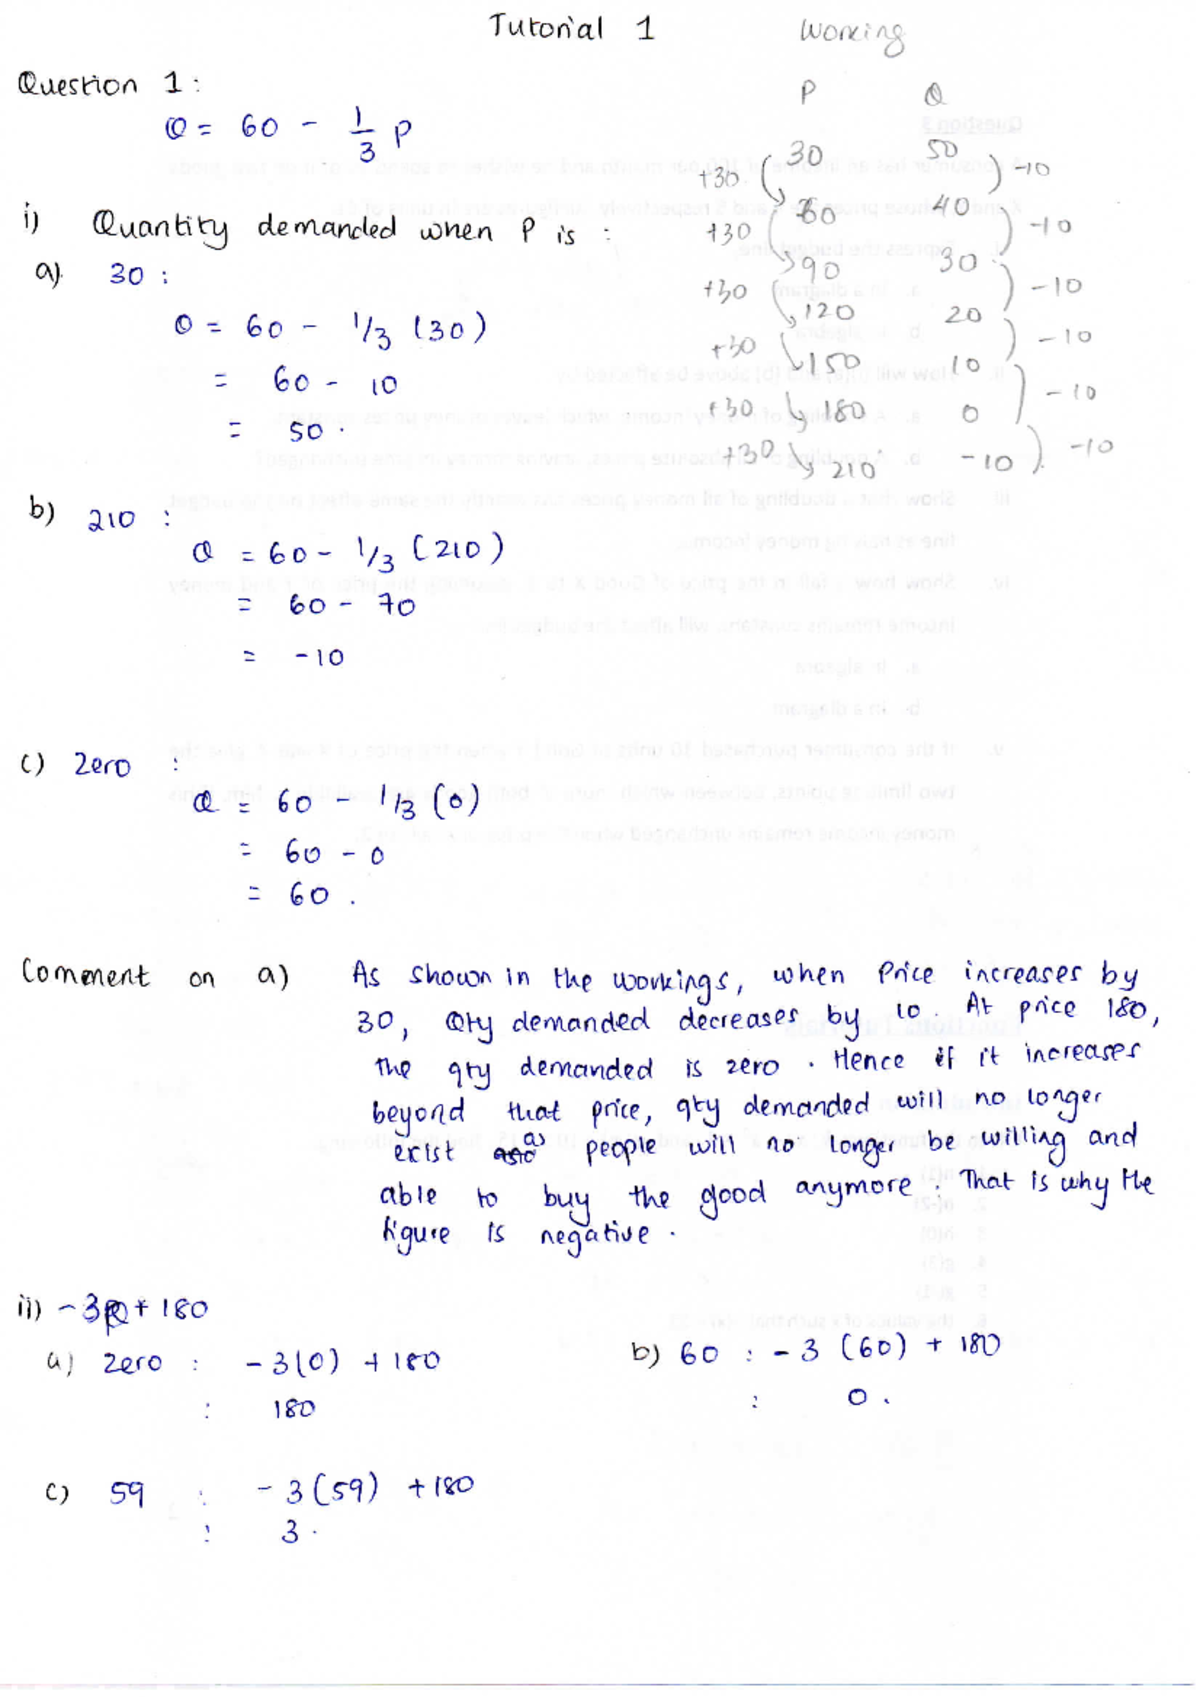 Tutorial 1
Working
Question 1:
Q = 60 - 1/3 P
P Q
30 50
+30 -10
60 40
+30 -10
90 30
+30 -10
120 20
+30 -10
150 10
+30 -10
180 0
+30 -10
210 -10
i) Quantity demanded when P is :
a) 30 :
Q = 60 - 1/3 (30)
= 60 - 10
= 50.
b) 210 :
Q = 60 - 1/3 (210)
= 60 - 70
= -10
c) Zero :
Q = 60 - 1/3 (0)
= 60 - 0
= 60.
Comment on a) As shown in the workings, when Price increases by
30, Qty demanded decreases by 10. At price 180,
the qty demanded is zero. Hence if it increases
beyond that price, qty demanded will no longer
exist as people will no longer be willing and
able to buy the good anymore. That is why the
figure is negative.
ii) -3Q + 180
a) Zero : -3(0) + 180
: 180
b) 60 : -3 (60) + 180
: 0.
c) 59 : -3(59) + 180
: 3.